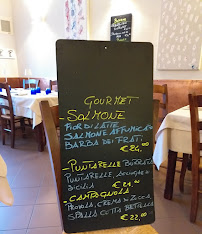 GOURMET
- SALMONE
FIOR DI LATTE
SALMONE AFFUMICATO
BARBA DEI FRATI
€24,00
PUNTARELLE BURRATA
PUNTARELLE, ACCIUGHE DI
SICILIA €21,00
- CAMPAGNOLA
PROVOLA, CREMA DI ZUCCA,
SPALLA COTTA
€22,00